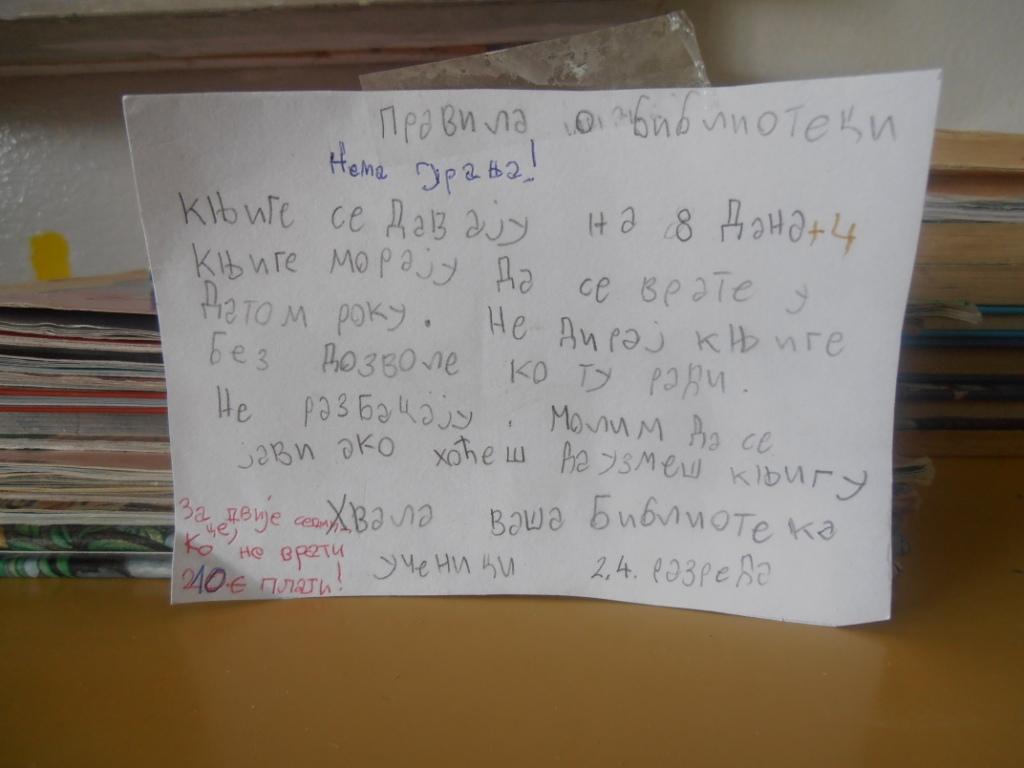 Правила о библиотеци
Нема гурања!
Књиге се Дават ају на 8 Дана+4
Књиге морају Да се врате у
Датом року. Не Дирај књиге
Без Дозволе ко ту ради.
Не разбацају. Молим Да се
јави ако хоћеш Да узмеш књигу
Хвала ваша Библиотека
ученици 2,4. разреДа
За двије седми
це,
Ко не врати
10 € плати!